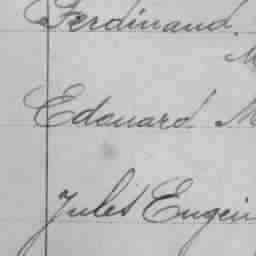 Ferdinand
M
Edouard M
Jules Eugein